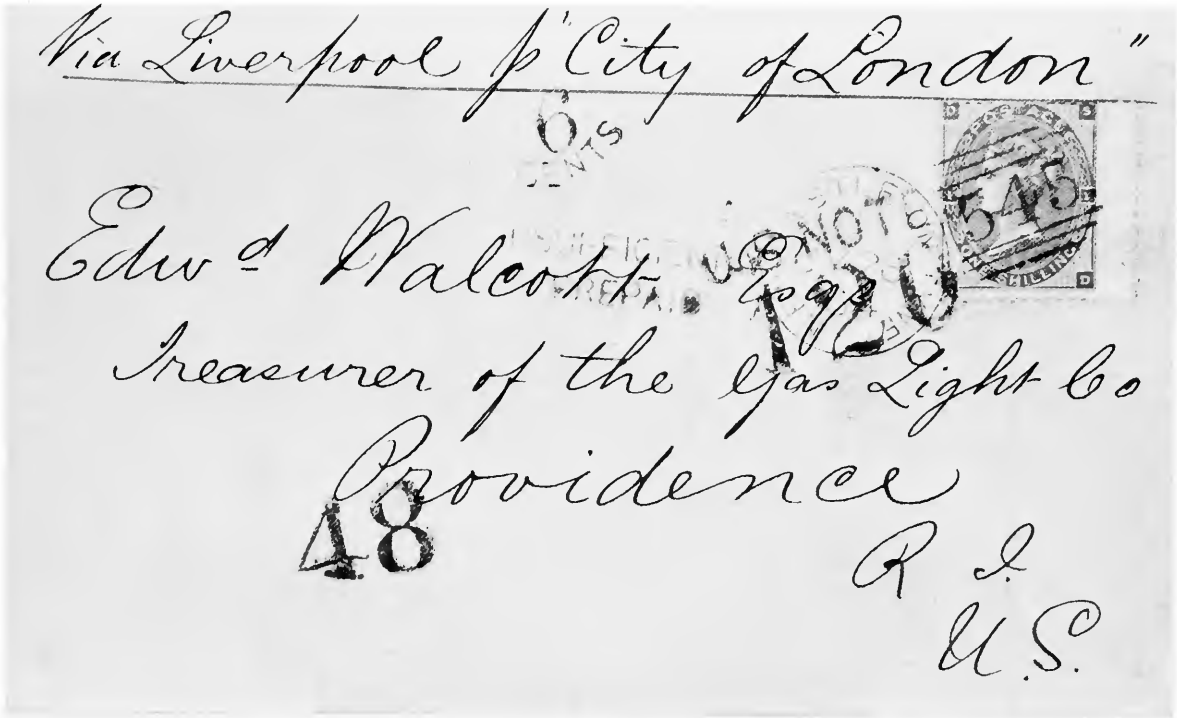 Via Liverpool p "City of London"
6
CENTS
POSTAGE
545
ONE SHILLING
D
INSUFFICIENTLY
PREPAID
NOT
120
Edwd Walcott Esqr
Treasurer of the Gas Light Co
Providence
48
R I.
U.S.